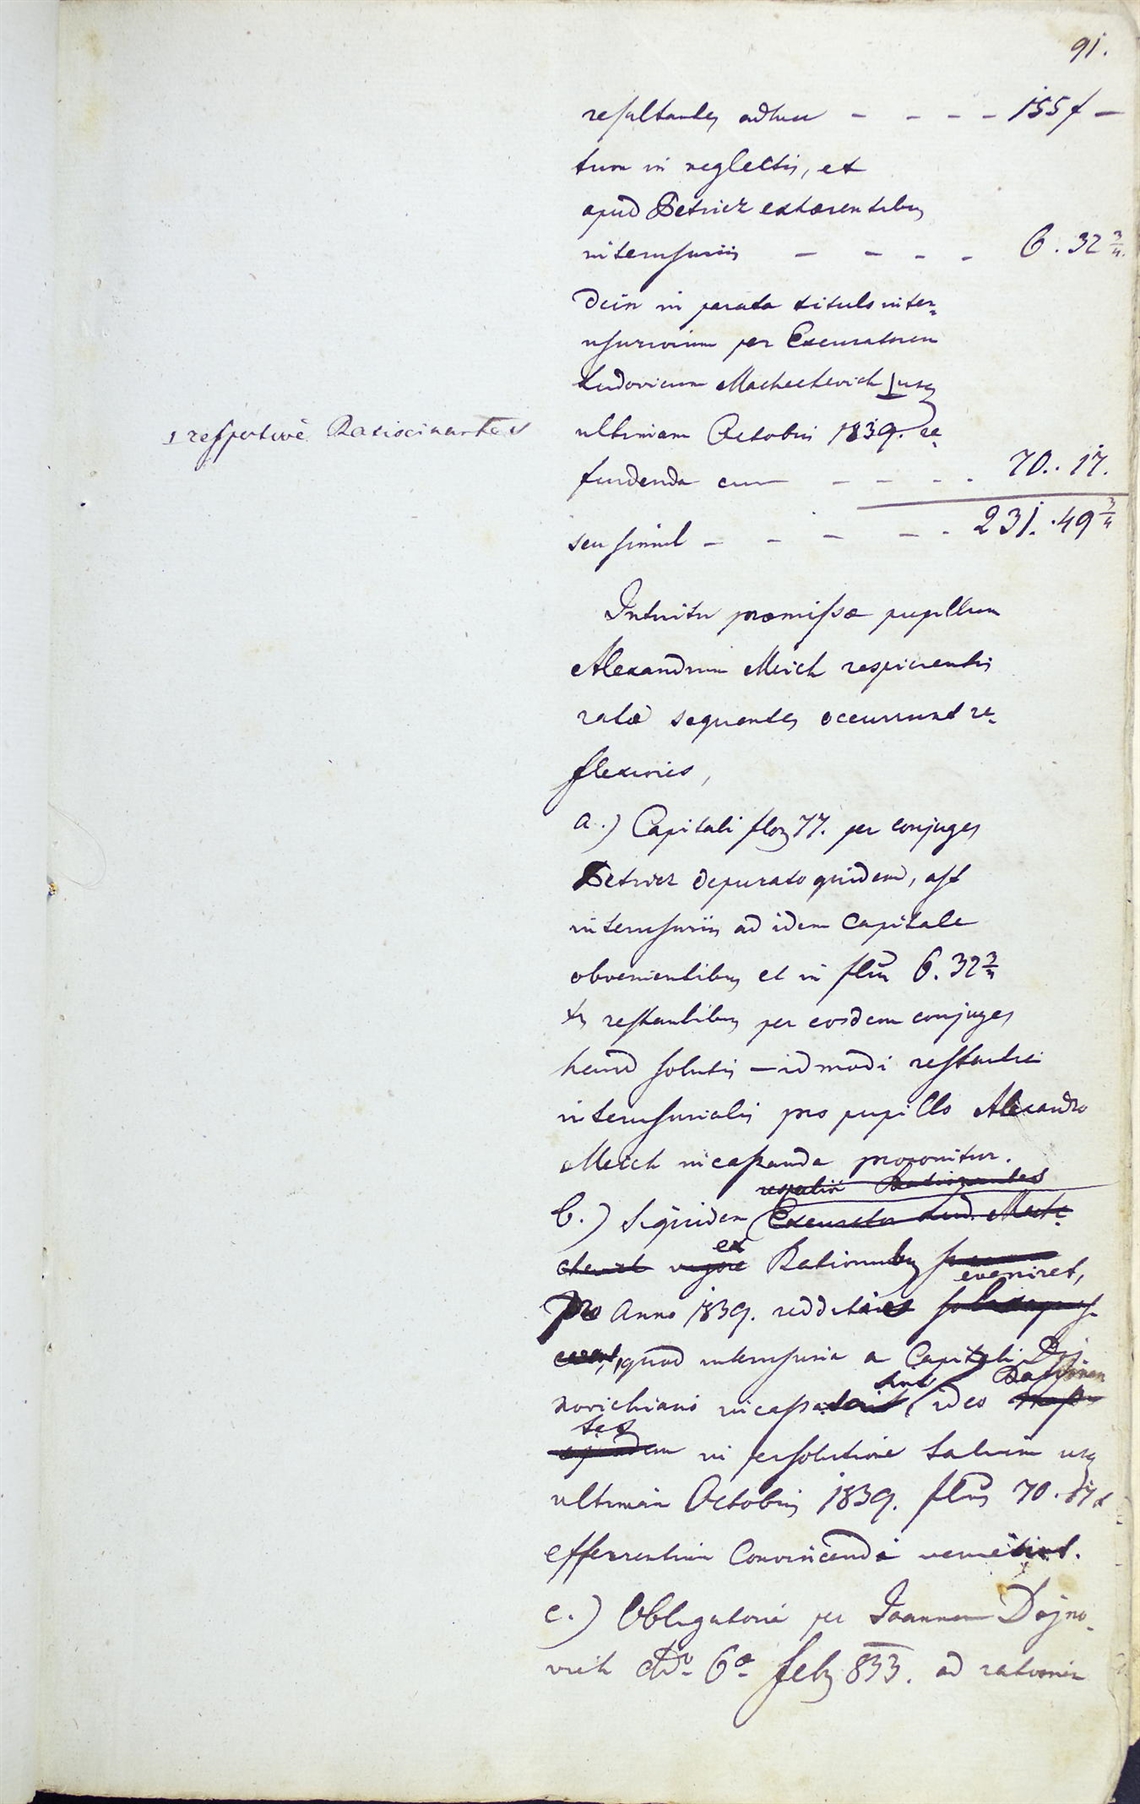 91.
resultantes adhuc - - - - 155 f -
tum in neglectis, et
apud Petricz exhaerentibus
interusuriis - - - - 6. 32 3/4.
Dein in parata titulo inter=
usuriorum per Excuratorem
Ludovicum Machechevich usq
1 respective Ratiocinantes
ultimam Octobris 1839. re=
fundenda cum - - - - 70.. 17.
seu simul - - - - - 231. 49 3/4
Intuitu praemissae pupillum
Alexandrum Meich respicientis
ratae sequentes occurrunt re=
flexiones,
a.) Capitali flor 77. per conjuges
Petricz depurato quidem, ast
interusuriis ad idem Capitale
obvenientibus et in flnis 6. 32 3/4
xr restantibus per eosdem conjuges
haud solutis - id modi restantia
interusurialis pro pupillo Alexandro
Meich incassanda proponitur.
b.) Siquidem Excurator Lud. Mach=
ex Rationibus
eveniret,
pro Anno 1839. redditis
quod interusuria a Capitali Doj=
novichiano incassata sint, ideo Ratiocinan
tes
in persolutione talium usq
ultimam Octobris 1839. flnis 70. 17 x
efferentium Convincendi
c.) Obligatoria per Joannem Dojno=
vich ddo 6a feb 833. ad rationem